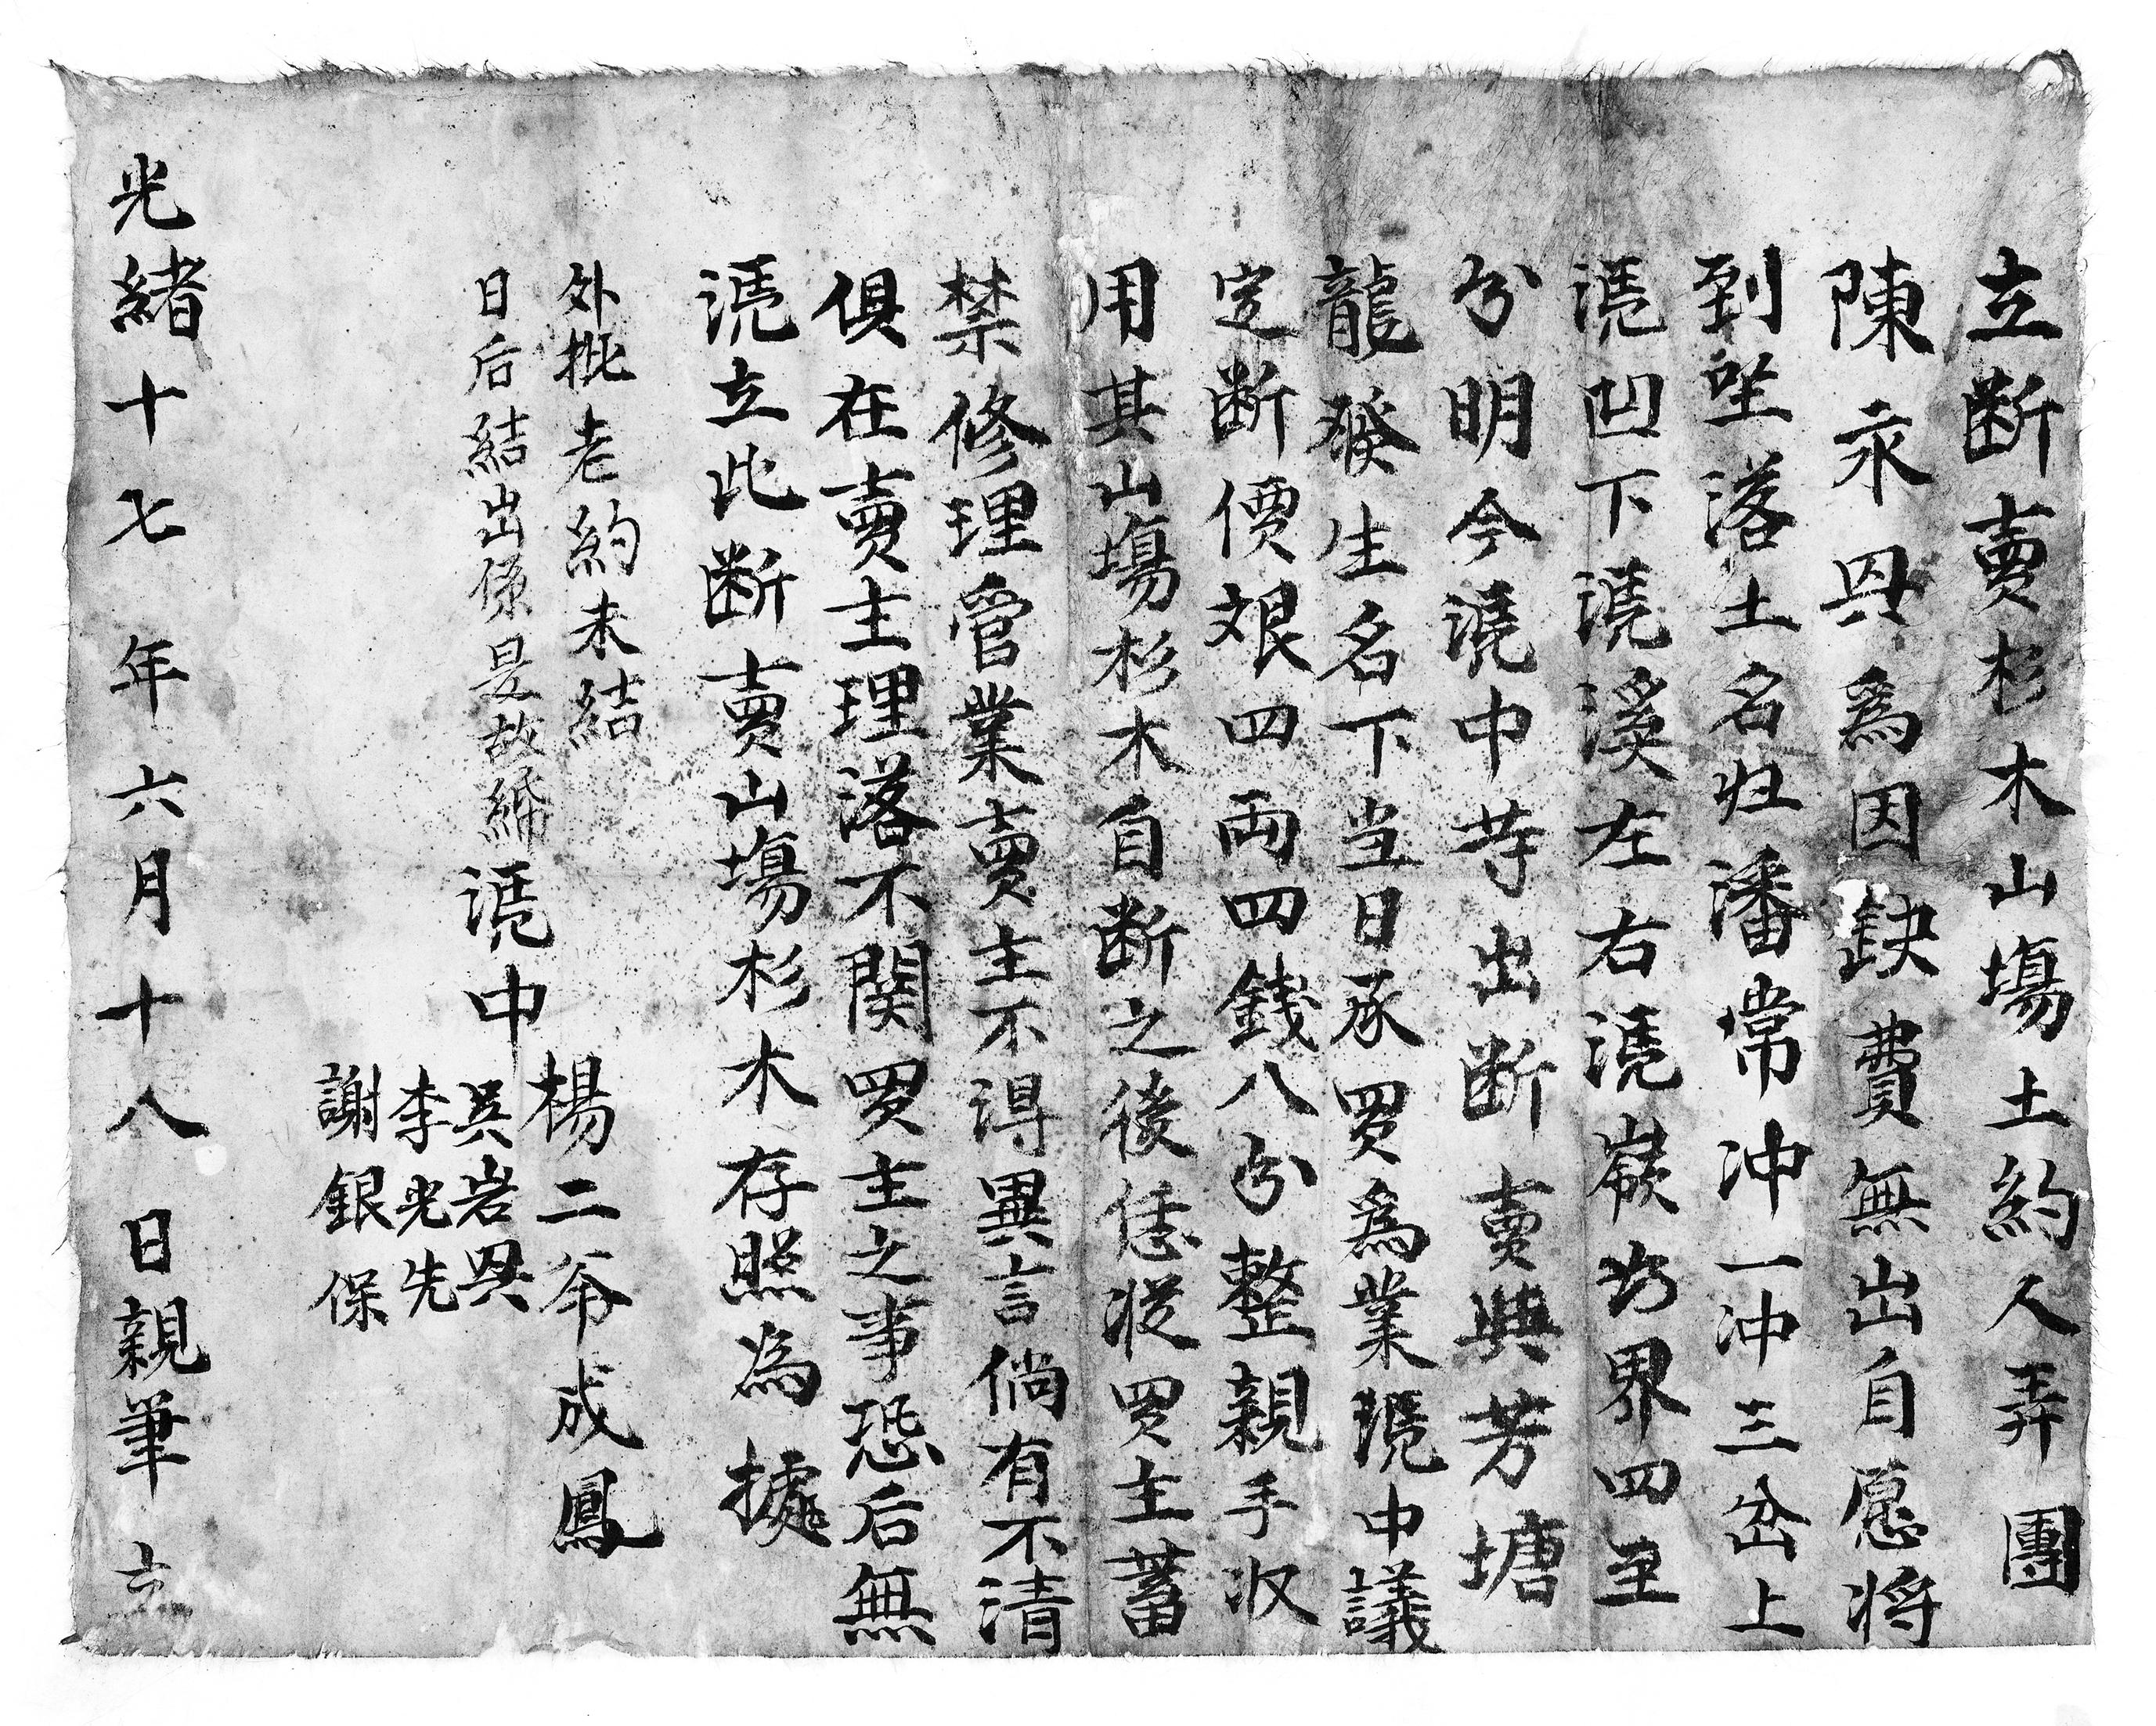 立断賣杉木山塲土約人弄團
陳永興為因缺費無出自愿将
到坐落土名归潘常冲一冲三岔上
凴凹下凴溪左右凴嶺為界四至
分明今凴中等出断賣與芳塘
龍發生名下当日承買為業凴中議
定断價艮四両四錢八分整親手収
用其山塲杉木自断之後恁從買主蓄
禁修理管業賣主不得異言倘有不清
俱在賣主理落不関買主之事恐后無
凴立此断賣山塲杉木存照為據
外批老約未結
日后結出係是故紙
凴中
楊二爷成鳳
吳岩興
李光先
謝銀保
光緒十七年六月十八日親筆立